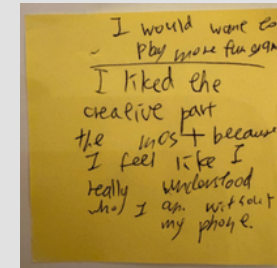 I would want to
- play more fun gam
I liked the
creative part
the most because
I feel like I
really understood
who I am without
my phone.